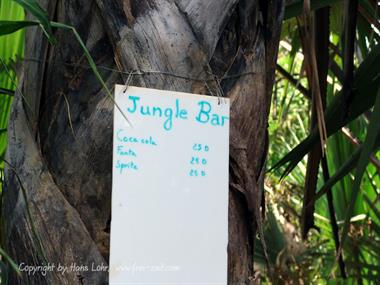 Jungle Bar
Coca cola 25 D
Fanta 25 D
Sprite 25 D
Copyright by Hans Lohr, www.fern-zeit.com